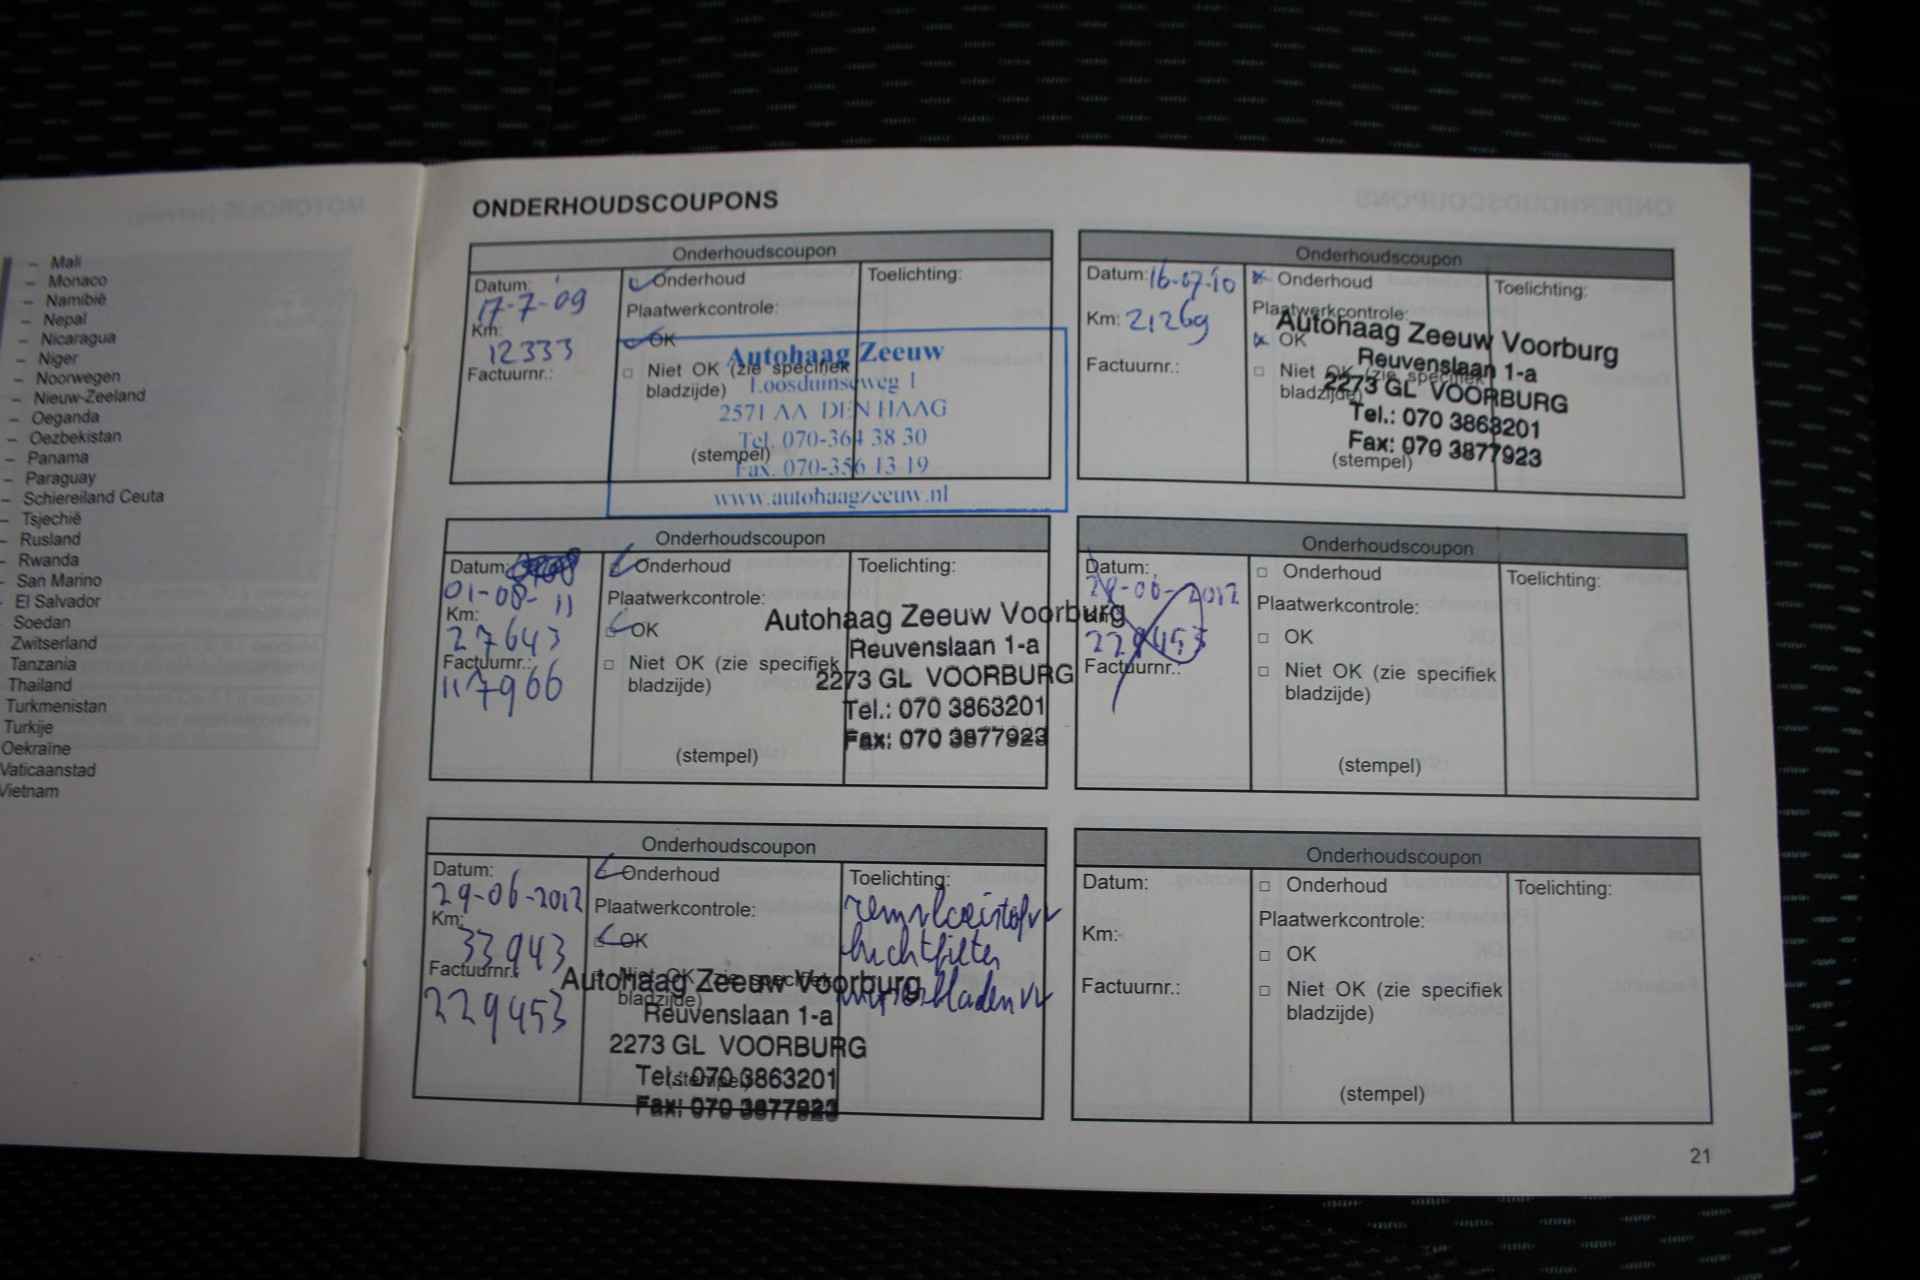 – Mali
– Monaco
– Namibië
– Nepal
– Nicaragua
– Niger
– Noorwegen
– Nieuw-Zeeland
– Oeganda
– Oezbekistan
– Panama
– Paraguay
– Schiereiland Ceuta
– Tsjechië
– Rusland
– Rwanda
– San Marino
El Salvador
Soedan
Zwitserland
Tanzania
Thailand
Turkmenistan
Turkije
Oekraïne
Vaticaanstad
Vietnam
ONDERHOUDSCOUPONS
Onderhoudscoupon
Datum:
17-7-09
Km:
12333
Factuurnr.:
Onderhoud
Plaatwerkcontrole:
OK
Niet OK (zie specifiek
bladzijde)
(stempel)
Toelichting:
Autohaag Zeeuw
Loosduinseweg 1
2571 AA DEN HAAG
Tel. 070-364 38 30
Fax. 070-356 13 19
www.autohaagzeeuw.nl
Onderhoudscoupon
Datum: 16-07-10
Km: 21269
Factuurnr.:
Onderhoud
Plaatwerkcontrole:
OK
Niet OK (zie specifiek
bladzijde)
(stempel)
Toelichting:
Autohaag Zeeuw Voorburg
Reuvenslaan 1-a
2273 GL VOORBURG
Tel.: 070 3863201
Fax: 070 3877923
Onderhoudscoupon
Datum:
01-08-11
Km:
27643
Factuurnr.:
117966
Onderhoud
Plaatwerkcontrole:
OK
Niet OK (zie specifiek
bladzijde)
(stempel)
Toelichting:
Autohaag Zeeuw Voorburg
Reuvenslaan 1-a
2273 GL VOORBURG
Tel.: 070 3863201
Fax: 070 3877923
Onderhoudscoupon
Datum:
29-06-2012
229453
Factuurnr.:
Onderhoud
Plaatwerkcontrole:
OK
Niet OK (zie specifiek
bladzijde)
(stempel)
Toelichting:
Onderhoudscoupon
Datum:
29-06-2012
Km:
33943
Factuurnr.:
229453
Onderhoud
Plaatwerkcontrole:
OK
Niet OK (zie specifiek
bladzijde)
(stempel)
Toelichting:
remvloeistof vv
luchtfilter
Autohaag Zeeuw Voorburg
Reuvenslaan 1-a
2273 GL VOORBURG
Tel.: 070 3863201
Fax: 070 3877923
Onderhoudscoupon
Datum:
Km:
Factuurnr.:
Onderhoud
Plaatwerkcontrole:
OK
Niet OK (zie specifiek
bladzijde)
(stempel)
Toelichting:
21